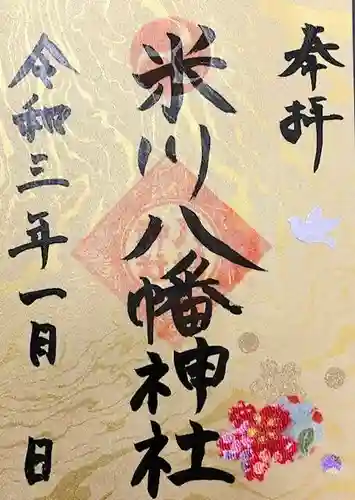 奉拝
米川八幡神社
令和三年一月 日